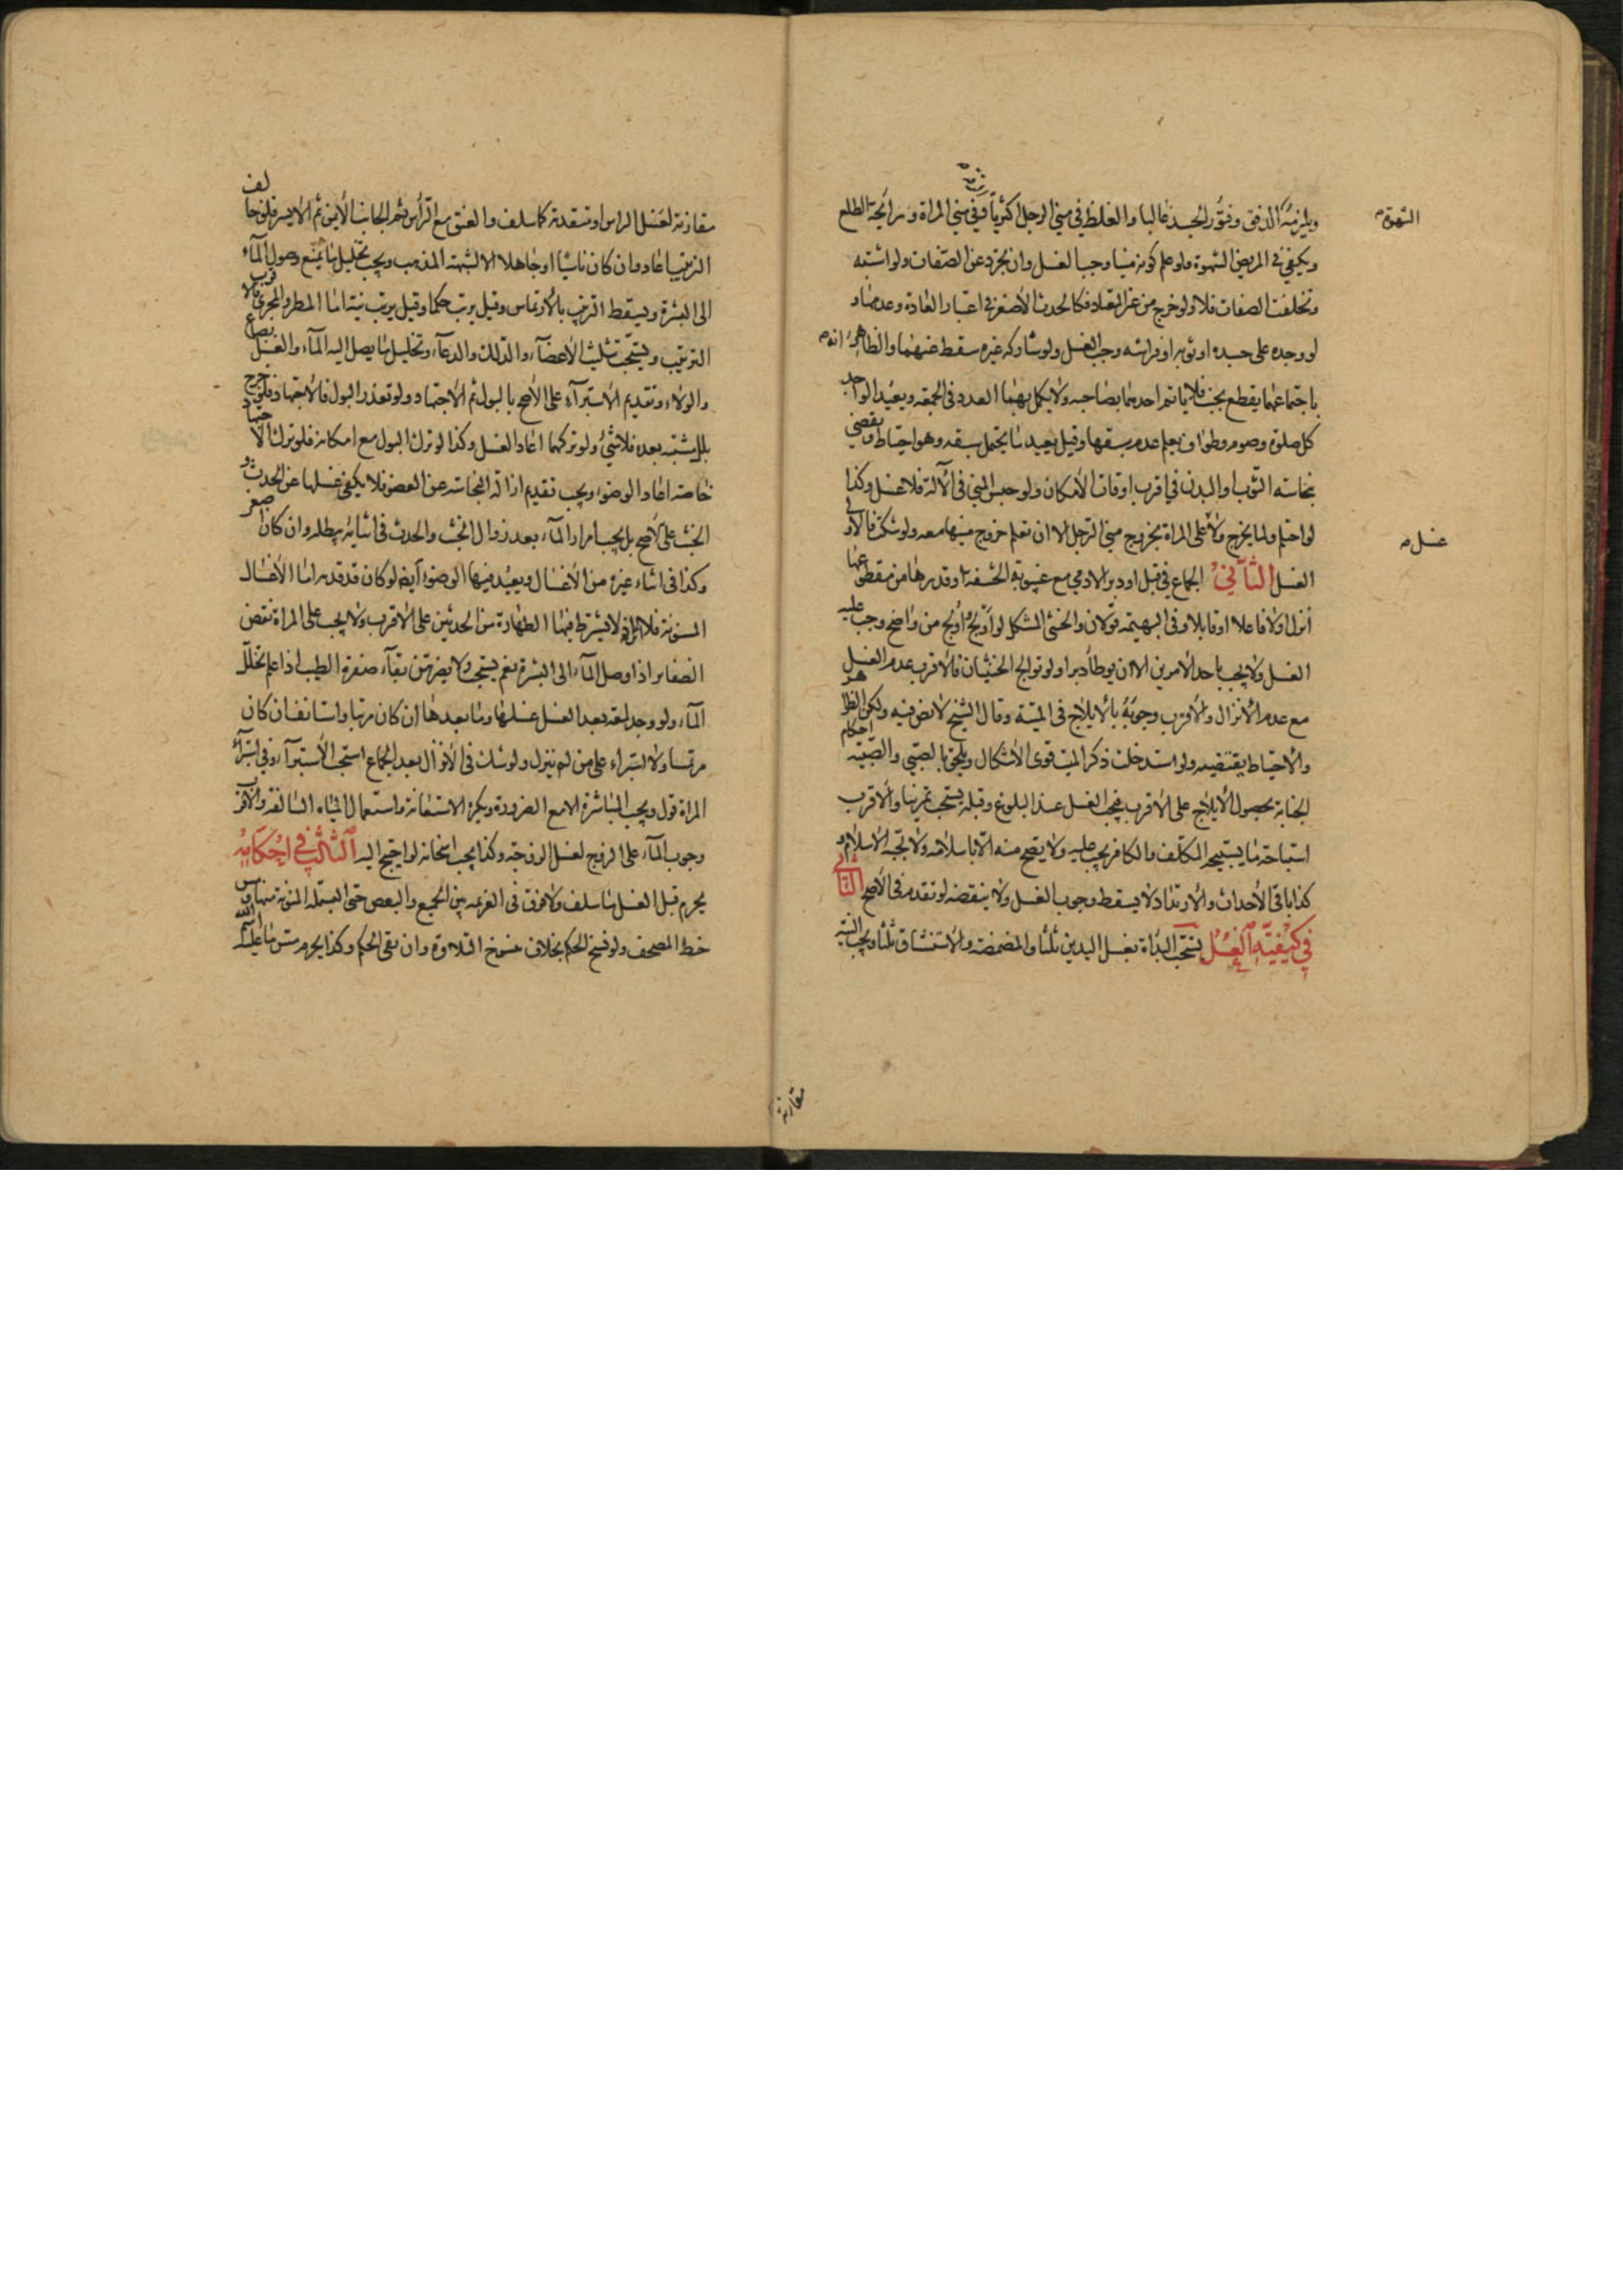 ويلزمه الدفق وفتور الجسد غالبا والغلظ في مني الرجل اكثريا وفي مني المراة ورايحة الطلع
الشهوة
ويكفي في المريض الشهوة ولو علم كونه منيا وجب الغسل وان تجرد عن الصفات ولو اشتبه
وتخلفت الصفات فلا ولو خرج من غير المعتاد فكالحدث الأصغر في اعتبار العادة وعدمها و
لو وجده على جسده او ثوبه او فراشه وجب الغسل ولو شاركه غيره سقط عنهما والظاهر انه
باجتماعهما يقطع بجنب فلا ياتم احدهما بصاحبه ولا يكمل بهما العدد في الجمعة ويعيد الواجد
كل صلوة وصوم وطواف يعلم عدم سبقها وقيل يعيد ما يحتمل سبقه وهو احتياط ويقضي
نجاسه الثوب او البدن في اقرب اوقات الأمكان ولو حبس المني في الآلة فلا غسل وكذا
لو احتلم ولما يخرج ولا على المراة بخروج مني الرجل الا ان تعلم خروج منيها معه ولو شكت فالاولى
غسل
الغسل الثاني الجماع في قبل او دبر لادمي مع غيبوبة الحشفة او قدرها من مقطوعها
انزل او لا فاعلا او قابلا وفي البهيمة قولان والخنثى المشكل لو اولج واولج من واضح وجب عليه
الغسل ولا يجب باحد الامرين الا ان يوطأ دبرا ولو توالج الخنثيان فالأقرب عدم الغسل
مع عدم الأنزال والأقرب وجوبه بالأيلاج في الميتة وقال الشيخ لا نص فيه ولكن الظاهر
والأحتياط يقتضيه ولو استدخلت ذكر الميت قوى الأشكال ويلحق بالصبي والصبية احكام
الجنابة بحصول الأيلاج على الأقرب فيجب الغسل عند البلوغ وقبله يستحب تمرينا والأقرب
استباحة ما يستبيحه المكلف والكافر يجب عليه ولا يصح منه الا باسلامه ولا يجبه الأسلام و
كذا باقي الأحداث والأرتداد لا يسقط وجوب الغسل ولا ينقضه لو تقدم في الأصح الثاني
في كيفية الغسل يستحب البداة بغسل اليدين ثلثا والمضمضة والأستنشاق ثلثا ويجب النية
مقارنة
مقارنة لغسل الراس او متقدمة كما سلف والعنق مع الرأس ثم الجانب الأيمن ثم الأيسر فلو خالف
الترتيب اعاد وان كان ناسيا او جاهلا الا لشبهة المذهب ويجب تخليل ما يمنع وصول المآء
الى البشرة ويسقط الترتيب بالأرتماس وقيل يرتب حكما وقيل يرتب نية اما المطر والمجرى فالاقرب
الترتيب ويستحب تثليث الأعضآء والدلك والدعآء وتخليل ما يصل اليه المآء والغسل بصاع
والولاء وتقديم الأستبرآء على الأصح بالبول ثم الأجتهاد ولو تعذر البول فالأجتهاد فلو خرج
بلل مشتبه بعده فلا شئ ولو تركهما اعاد الغسل وكذا لو ترك البول مع امكانه فلو ترك الاجتهاد
خاصة اعاد الوضوء ويجب تقديم ازالة النجاسة عن العضو فلا يكفي غسلها عن الحدث و
الخبث على الأصح بل يجب امرار المآء بعد زوال الخبث والحدث في اثنائه يبطله وان كان اصغر
وكذا في اثناء غيره من الأغسال ويعيد فيها الوضوء أيضا لو كان قد قدمه اما الأغسال
المسنونة فلا لانه لا يشترط فيها الطهارة من الحدثين على الأقرب ولا يجب على المراة نقض
الضفاير اذا وصل المآء الى البشرة نعم يستحب ولا يضرهن بقآء صفرة الطيب اذا علم تخلل
المآء ولو وجد لمعة بعد الغسل غسلها وما بعدها ان كان مرتبا واستانف ان كان
مرتمسا ولا استبراء على من لم ينزل ولو شك في الأنزال بعد الجماع استحب الأستبرآء وفي استبرآء
المراة قول ويجب المباشرة الا مع الضرورة ويكره الاستعانة واستعمال المياه السالفة والأقرب
وجوب المآء على الزوج لغسل الزوجة وكذا يجب اسخانه لو احتيج اليه الثالث في احكامه
يحرم قبل الغسل ما سلف ولا فرق في العزيمة بين الجميع والبعض حتى البسملة المنوية منها ومس
خط المصحف ولو نسخ الحكم بخلاف منسوخ التلاوة وان بقي الحكم وكذا يحرم مس ما عليه اسم الله